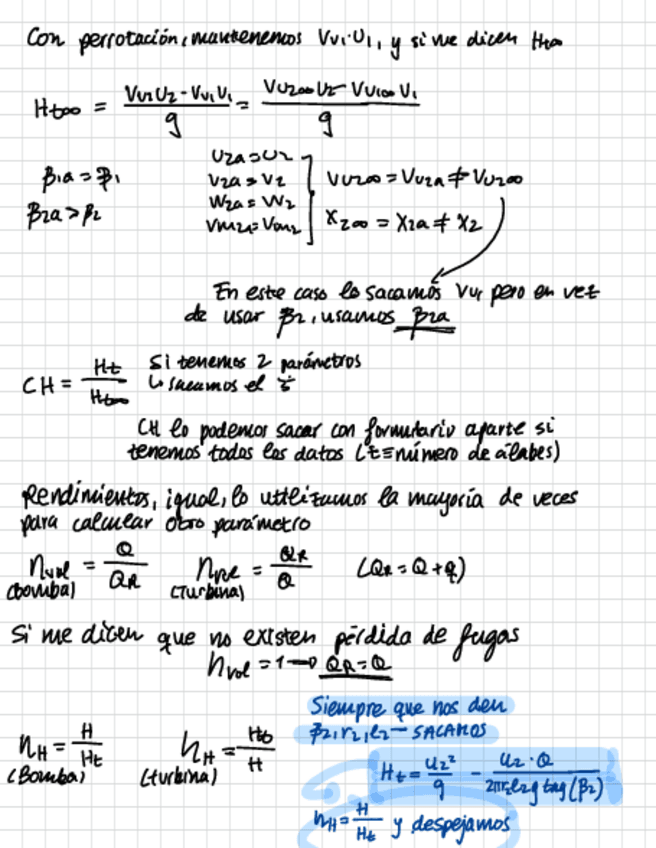 Con perrotación, mantenemos Vu1·U1, y si me dicen Ht∞
Ht∞ = (Vu2U2 - Vu1U1)/g = (Vu2∞U2 - Vu1∞U1)/g
β1a = β1
β2a > β2
U2a = U2
V2a = V2
W2a = W2
Vm2a = Vm2
Vu2∞ = Vu2a ≠ Vu2∞
X2∞ = X2a ≠ X2
En este caso lo sacamos Vu, pero en vez
de usar β2, usamos β2a
CH = Ht/Ht∞
Si tenemos 2 parámetros
↳ sacamos el
CH lo podemos sacar con formulario aparte si
tenemos todos los datos (z=número de álabes)
Rendimientos, igual, lo utilizamos la mayoría de veces
para calcular otro parámetro
ηvol (bomba) = Q/QR
ηvol (turbina) = QR/Q
(QR = Q + q)
Si me dicen que no existen pérdida de fugas
ηvol = 1 → QR = Q
Siempre que nos den
β2, r2, l2 → SACAMOS
ηH (Bomba) = H/Ht
ηH (turbina) = Ht/H
Ht = U2²/g - U2·Q/(2πr2l2g tag(β2))
ηH = H/Ht y despejamos